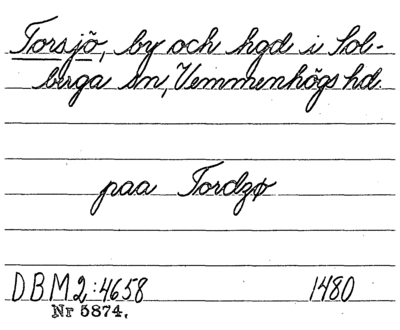 Torsjö, by och hgd i Sol-
berga sn, Vemmenhögs hd.
paa Tordzø
DBM2:4658 1480
Nr 5874,